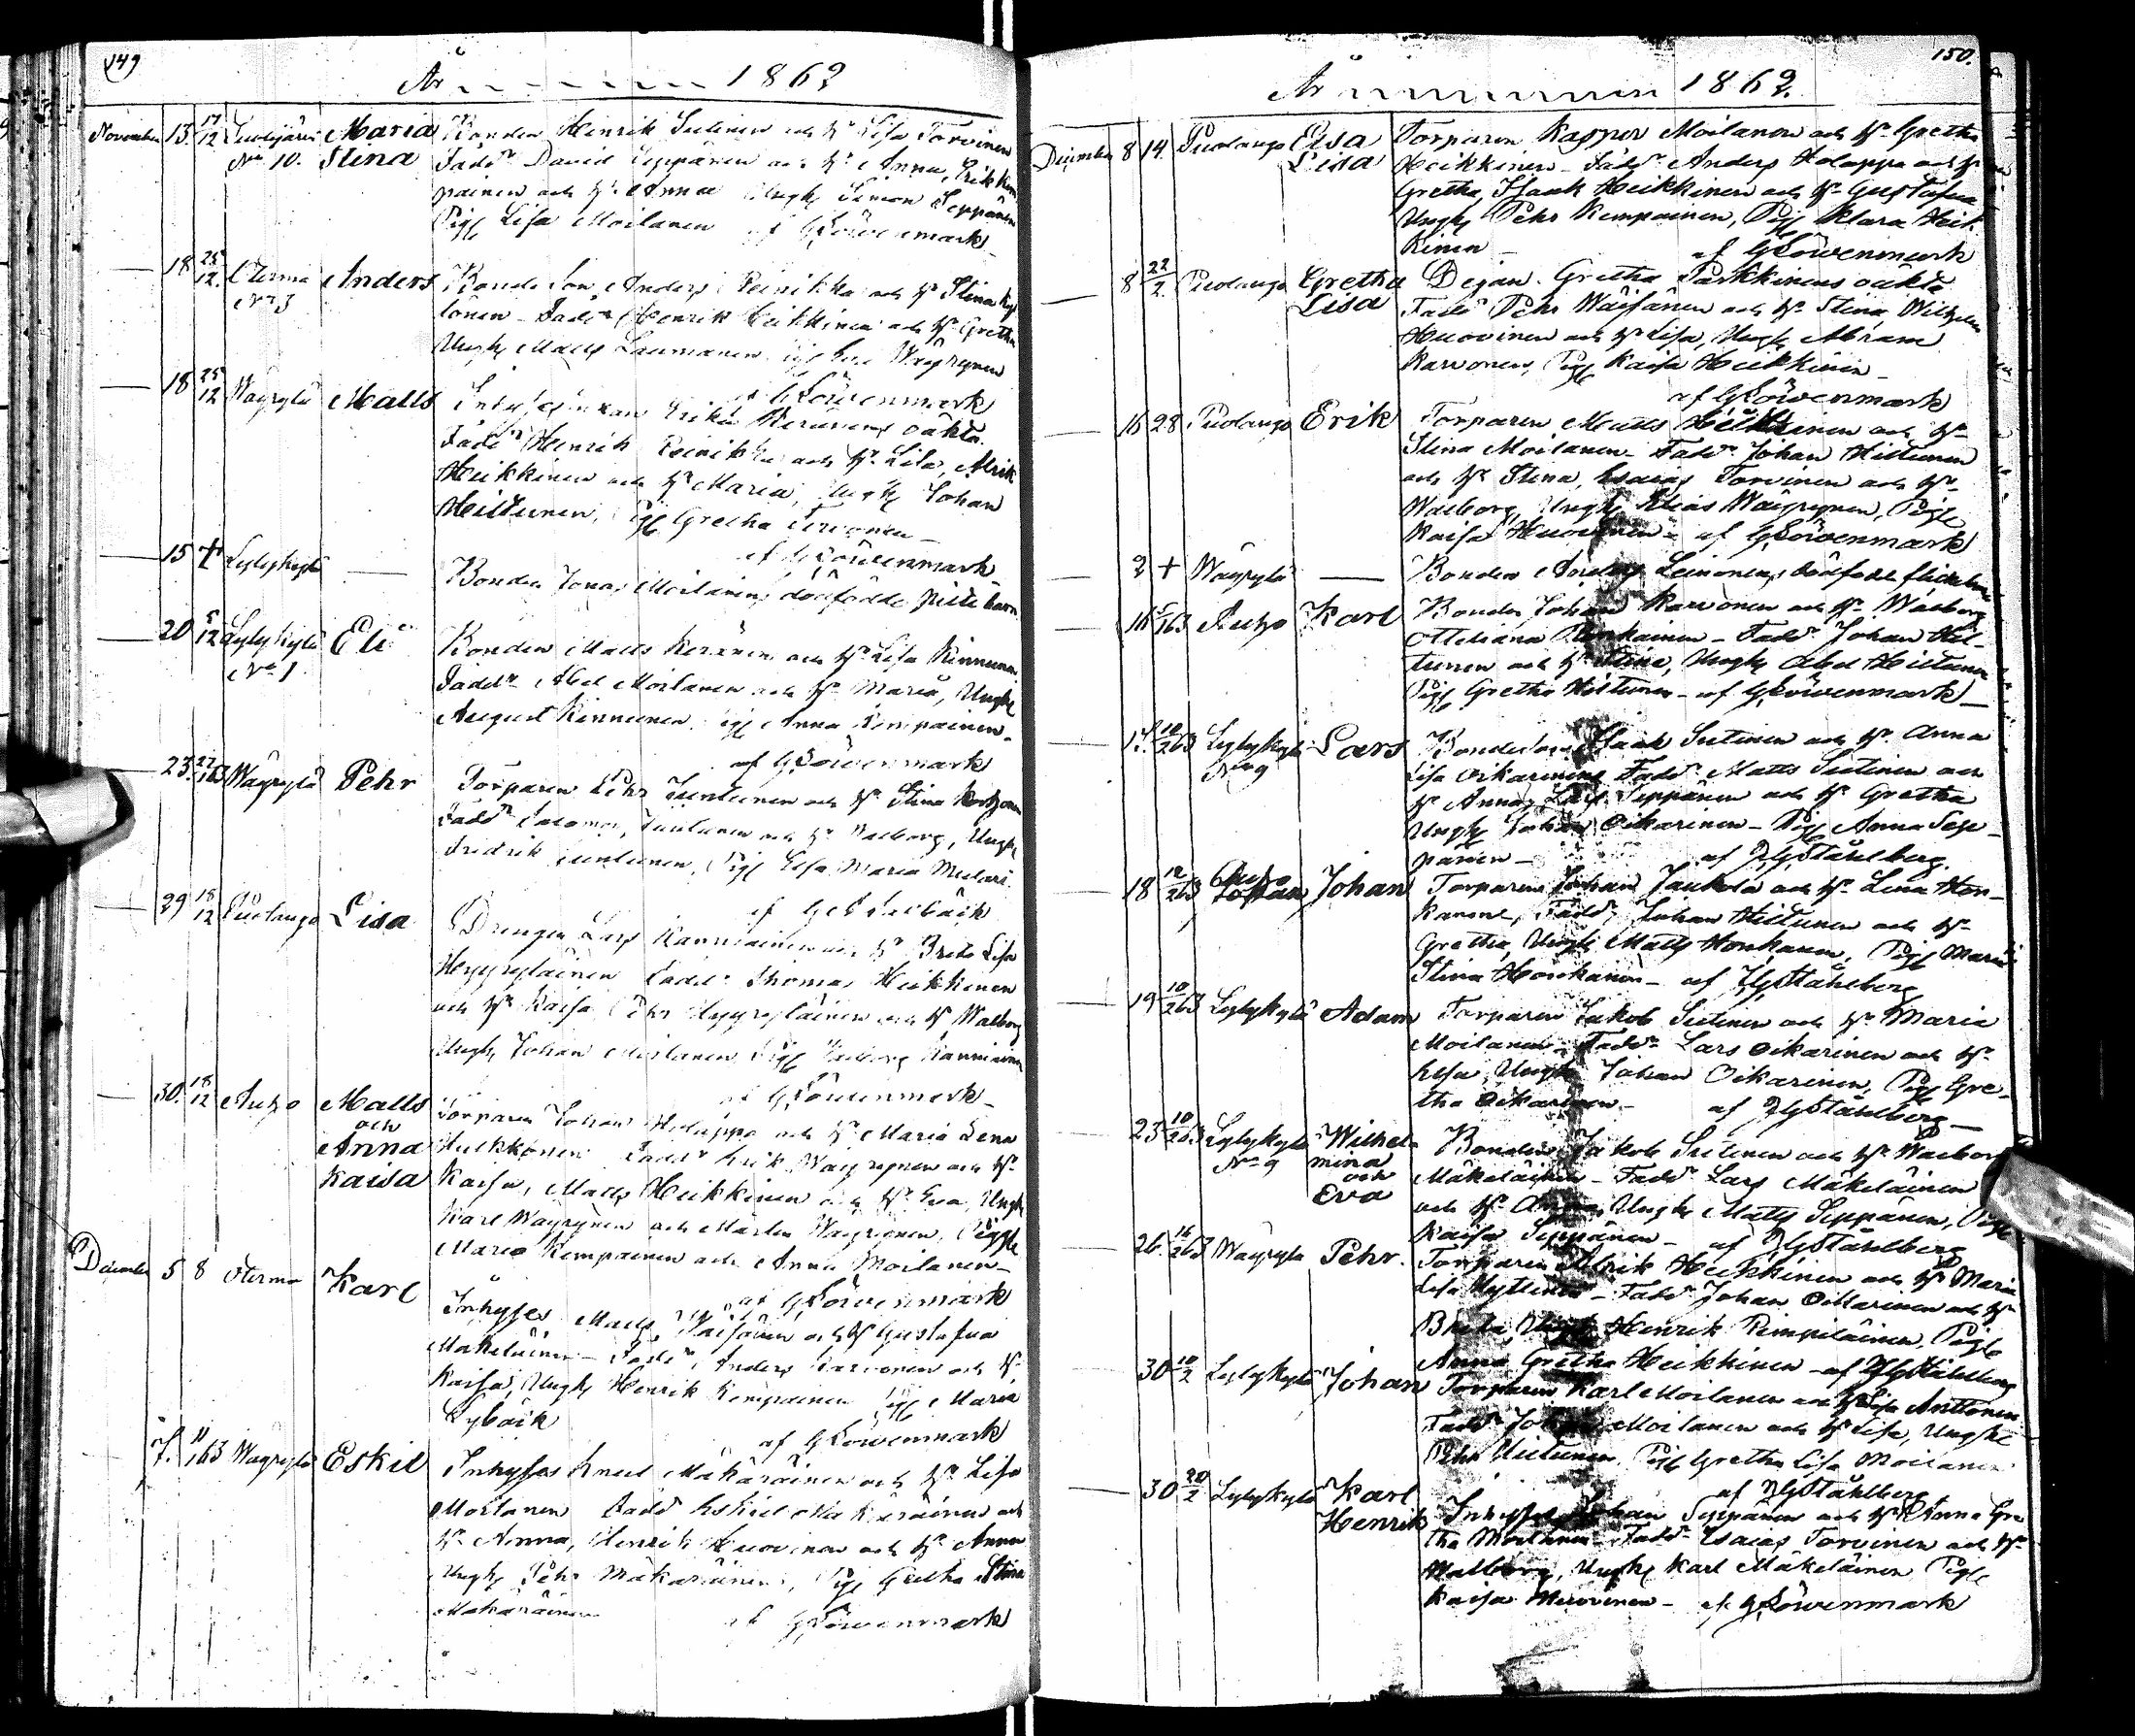 149
År 1862
November 13. 17/12 No 10. Maria Stina Bonden Henrik Sutinen och h. Lisa Torvinen
Fadd. David Seppänen och h. Anna, Erik Kem
painen och h. Anna Yngl. Simon Seppänen
Pig. Lisa Moilanen af GLöwenmark
18 25/12. Oterma No 3 Anders Bonde Son Anders Reinikka och h. Stina
Fadd. Henrik Heikkinen och h. Gretha
Yngl. Matts Laumanen
af GLöwenmark
18 25/12 Wäyrylä Matts oäkta
Fadd. Henrik Reinikka och h. Lisa, Alrik
Heikkinen och h. Maria, Yngl. Johan
Hiltunen, Pig. Gretha
af GLöwenmark
15 + Lylykylä — Bonden Jonas Moilanens dödfödde
20 5/12 Lylykylä No 1 Eli Bonden Matts Keränen och h. Lisa Kinnunen
Fadd. Abel Moilanen och h. Maria, Yngl.
August Kinnunen. Pig. Anna Kempainen.
af GLöwenmark
23. Wäyrylä Pehr Torparen Pehr Juntunen och h. Stina
Fadd. Salomon Juntunen och h. Walborg, Yngl.
Fredrik Juntunen, Pig. Lisa Maria
29 18/12 Puolango Lisa Drengen Lars och h. Brita Lisa
Hyyryläinen Fadd. Thomas Heikkinen
och h. Kaisa, Pehr Hyyryläinen och h. Walborg
Yngl. Johan Moilanen Pig. Walborg
af GLöwenmark
30. 18/12 Auho Matts och Anna Kaisa Torparen Johan Holappa och h. Maria Lena
Fadd. Erik Wäyrynen och h.
Kaisa, Matts Heikkinen och h. Eva, Yngl.
Karl Wäyrynen och Mårten Wäyrynen, Pigg.
Maria Kempainen och Anna Moilanen
af GLöwenmark
December 5 8 Oterma Karl Inhyses Matts Wäisänen och h. Gustafva
Mäkeläinen Fadd. Anders Karvonen och h.
Kaisa, Yngl. Henrik Kempainen Pig. Maria
Lybäck
af GLöwenmark
7. 11/1 63 Wäyrylä Eskil Inhyses Knut Mäkäräinen och h. Lisa
Moilanen Fadd. Eskil Mäkäräinen och
h. Anna, Henrik Huovinen och h. Anna
Yngl. Pehr Mäkäräinen, Pig. Gretha Stina
Mäkäräinen
af GLöwenmark
150.
År 1862.
December 8 14. Puolango Elsa Lisa Torparen Kasper Moilanen och h. Gretha
Heikkinen Fadd. Anders Holappa och h.
Gretha, Isaak Heikkinen och h. Gustafva
Yngl. Pehr Kempainen, Pig. Klara Heik
kinen
af GLöwenmark
8 22/2. Puolango Gretha Lisa Dejan Gretha Parkkinens oäkta
Fadd. Pehr Wäisänen och h. Stina, Wilhelm
Huovinen och h. Lisa, Yngl. Abram
Karvonen, Pig. Kaisa Heikkinen
af GLöwenmark
15 28 Puolango Erik Torparen Matts Heikkinen och h.
Stina Moilanen Fadd. Johan Hiltunen
och h. Stina, Esaias Torvinen och h.
Walborg, Yngl. Elias Wäyrynen, Pig.
Kaisa Huovinen af GLöwenmark
2 + Wäyrylä — Bonden Anders Leinonens dödfödde
16 Auho Karl Bonden Johan Karvonen och h. Walborg
Fadd. Johan Hil-
tunen och h. Stina, Yngl. Abel Hiltunen
Pig. Gretha Hiltunen af GLöwenmark
17. 10/2 63 Lylykylä No 9 Lars Bondeson Isaak Sutinen och h. Anna
Lisa Oikarinen Fadd. Matts Sutinen och
h. Anna, Lars Seppänen och h. Gretha
Yngl. Johan Oikarinen Pig. Anna Sep-
pänen
af Ståhlberg
18 12/2 63 Auho Johan Torparen Johan Jaukola och h. Lena Hon-
kanen, Fadd. Johan Hiltunen och h.
Gretha, Yngl. Matts Honkanen, Pig. Maria
Stina Honkanen af Ståhlberg
19 10/2 63 Lylykylä Adam Torparen Jakob Sutinen och h. Maria
Moilanen Fadd. Lars Oikarinen och h.
Yngl. Johan Oikarinen, Pig. Gre-
tha Oikarinen
af Ståhlberg
23 10/2 63 Lylykylä No 9 Wilhel-mina och Eva Bonden Jakob Sutinen och h. Walborg
Mäkeläinen Fadd. Lars Mäkeläinen
och h. Anna, Yngl. Matts Seppänen, Pig.
Kaisa Seppänen af Ståhlberg
26. 16/2 63 Wäyrylä Pehr. Torparen Alrik Heikkinen och h. Maria
Lisa Fadd. Johan och h.
Brita, Yngl. Henrik Pig.
Anna Gretha Heikkinen af Ståhlberg
30 10/2 Lylykylä Johan Torparen Karl Moilanen och h. Lisa Anttonen
Fadd. Johan Moilanen och h. Lisa, Yngl.
Pehr Hiltunen, Pig. Gretha Lisa Moilanen
af Ståhlberg
30 20/2 Lylykylä Karl Henrik Inhyses Johan Seppänen och h. Anna Gre
tha Moilanen Fadd. Esaias Torvinen och h.
Walborg, Yngl. Karl Mäkeläinen Pig.
Kaisa af GLöwenmark